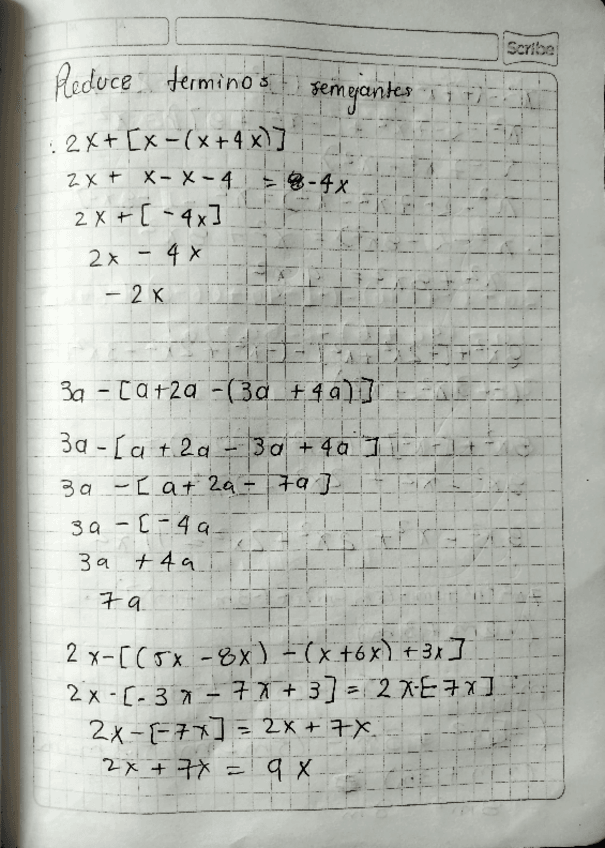 Scribe
Reduce terminos semejantes
: 2x + [x - (x + 4x)]
2x + x - x - 4 = -4x
2x + [-4x]
2x - 4x
- 2x
3a - [a + 2a - (3a + 4a)]
3a - [a + 2a - 3a + 4a]
3a - [a + 2a - 7a]
3a - [-4a
3a + 4a
7a
2x - [(5x - 8x) - (x + 6x) + 3x]
2x - [-3x - 7x + 3] = 2x - [-7x]
2x - [-7x] = 2x + 7x
2x + 7x = 9x